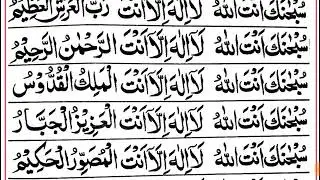 سُبْحٰنَكَ اَنْتَ اللّٰهُ لَآ اِلٰهَ اِلَّا اَنْتَ رَبُّ الْعَرْشِ الْعَظِيْمِ
سُبْحٰنَكَ اَنْتَ اللّٰهُ لَآ اِلٰهَ اِلَّا اَنْتَ الرَّحْمٰنُ الرَّحِيْمُ
سُبْحٰنَكَ اَنْتَ اللّٰهُ لَآ اِلٰهَ اِلَّا اَنْتَ الْمَلِكُ الْقُدُّوْسُ
سُبْحٰنَكَ اَنْتَ اللّٰهُ لَآ اِلٰهَ اِلَّا اَنْتَ الْعَزِيْزُ الْجَبَّارُ
سُبْحٰنَكَ اَنْتَ اللّٰهُ لَآ اِلٰهَ اِلَّا اَنْتَ الْمُصَوِّرُ الْحَكِيْمُ